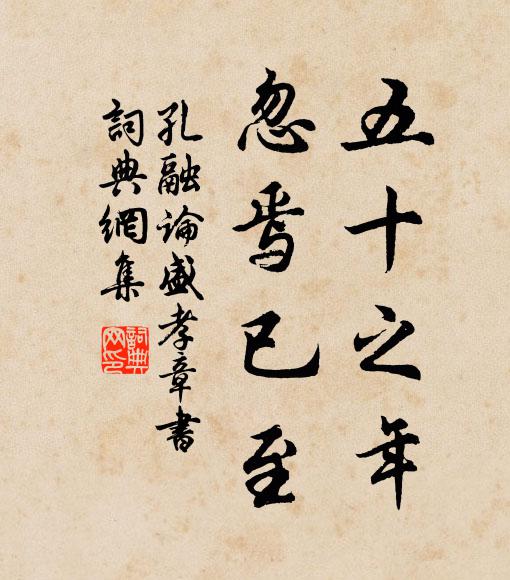 五十之年
忽焉已至
孔融論盛孝章書
詞典網集
詞典網印